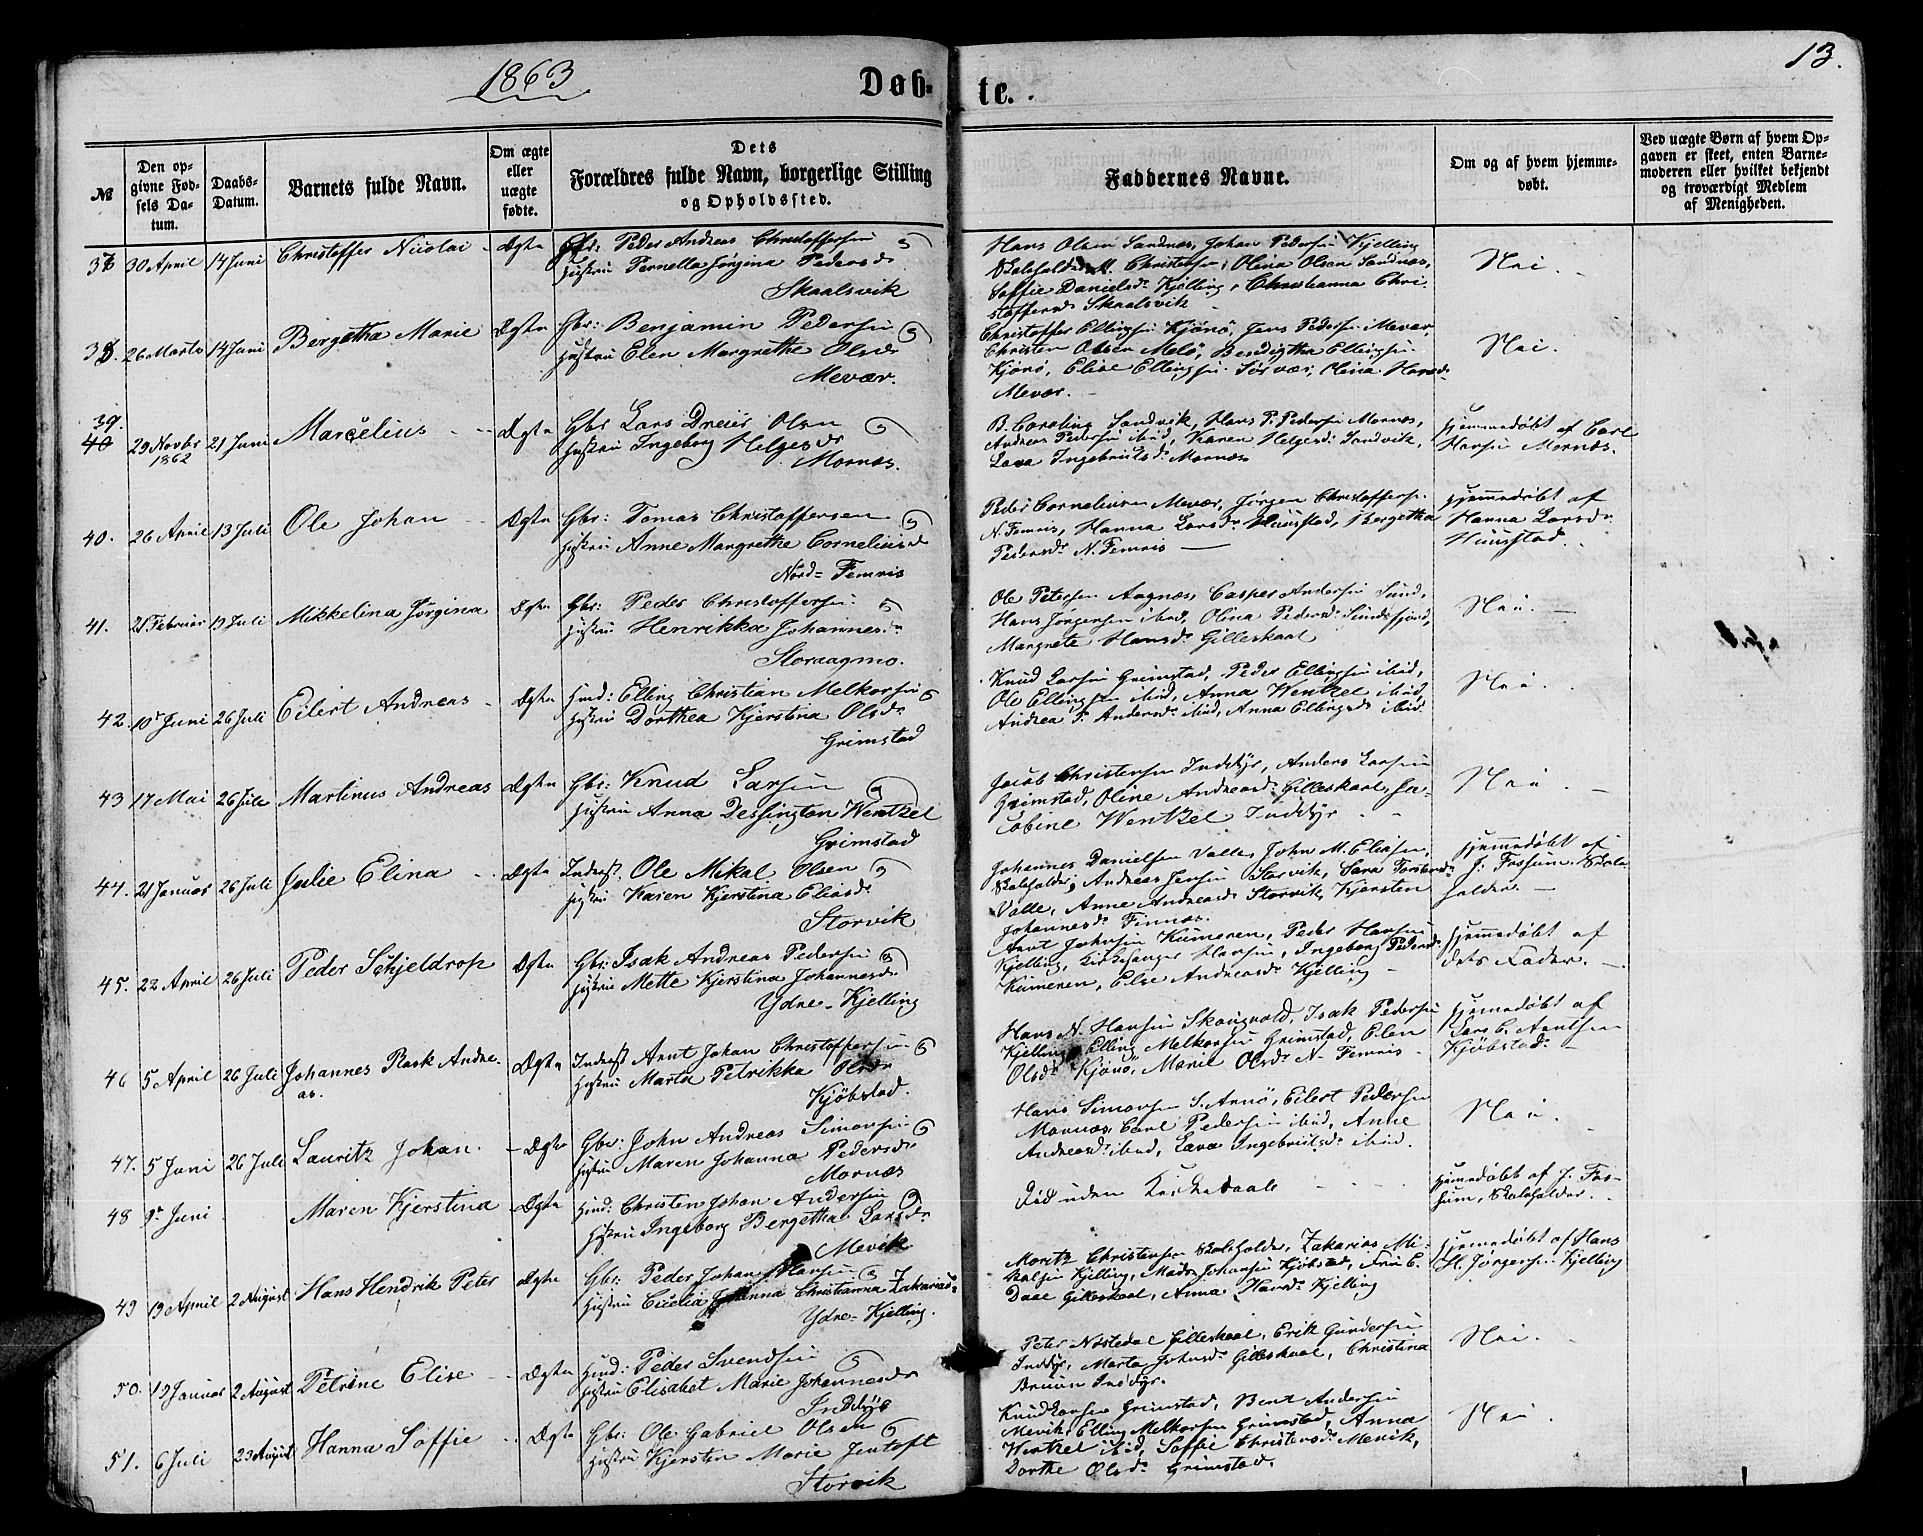 1863
Døb-
te.
13.
№
Den op-
givne Fød-
sels Da-
tum.
Daabs-
Datum.
Barnets fulde Navn.
Om ægte
eller
uægte
fødte.
Dets
Forældres fulde Navn, borgerlige Stilling
og Opholdssted.
Faddernes Navne.
Om og af hvem hjemme-
døbt.
Ved uægte Børn af hvem Op-
gaven er skeet, enten Barne-
moderen eller hvilket bekjendt
og troværdigt Medlem
af Menigheden.
30 April 14 Juni Christoffer Nicolai Ægte Gbr: Peder Andreas Christoffersen
Hustru Pernella Jørgina Pedersdr
Skaalsvik
Hans Olsen Sandnæs, Johan Pedersen Kjelling
Skoleholder M. Christensen, Olina Olsen Sandnæs,
Soffie Danielsdr Kjelling, Christianna Chri-
stoffersdr Skaalsvik
Nei.
38. 26 Marts 14 Juni Bergetha Marie Ægte Gbr: Benjamin Pedersen
Hustru Elen Margrethe Olsdr
Mevær.
Christoffer Ellingsen Kjønø, Jens Pedersen Mevær,
Christen Olsen Melø, Bendigtha Ellingsen
Kjønø, Elise Ellingsen Sørvær, Olina Hansdr
Mevær.
Nei.
39.
40 29 Novbr 21 Juni Marcelius Ægte Gbr Lars Dreier Olsen
1862
Hustru Ingeborg Helgesdr
Mornæs.
B. Caroling Sandvik, Hans P. Pedersen Mornæs,
Andreas Pedersen ibid, Karen Helgesdr Sandvik,
Lava Ingebrigtsdr Mornæs
Hjemmedøbt af Carl
Hansen Mornæs.
40. 26 April 13 Juli Ole Johan Ægte Gbr: Tomas Christoffersen
Hustru Anne Margrethe Corneliusdr
Nord-Femris
Peder Corneliusen Mevær, Jørgen Christoffersen
N. Femris, Hanna Larsdr Huustad, Bergetha
Pedersdr N. Femris
Hjemmedøbt af
Hanna Larsdr
Huustad.
41. 21 Februar 19 Juli Mikkelina Jørgina Ægte Gbr: Peder Christoffersen
Hustru Henrikka Johannesdr
Storaagmo.
Ole Petersen Aagnæs, Casper Andersen Sund,
Hans Jørgensen ibid, Olina Pedersdr Sundsfjord,
Margrete Hansdr Gilleskaal
Nei.
42. 10de Juni 26 Juli Eilert Andreas Ægte Hmd: Elling Christian Melkorsen
Hustru Dorthea Kjerstina Olsdr
Grimstad
Knud Larsen Grimstad, Peder Ellingsen ibid,
Ole Ellingsen ibid, Anna Wentzel ibid,
Andrea P. Andersdr ibid, Anna Ellingsdr ibid
Nei.
43 17 Mai 26 Juli Martinus Andreas Ægte Gbr: Knud Larsen
Hustru Anna Dessington Wentzel
Grimstad
Jacob Christensen Inddyr, Anders Larsen
Grimstad, Oline Andreasdr Gilleskaal, Ja-
cobine Wentzel Inddyr
Nei.
44. 21 Januar 26 Juli Julie Elina Ægte Inderst Ole Mikal Olsen
Hustru Karen Kjerstina Eliasdr
Storvik
Johannes Danielsen Valle, John M. Eliasen,
Skoleholder, Andreas Jensen Storvik, Sara Torstensdr
Valle, Anne Andreasdr Storvik, Kjersten
Johannesdr Finnæs.
Hjemmedøbt af
J. Fossum, Skole-
holder.
45. 22 April 26 Juli Peder Schjeldrop Ægte Gbr: Isak Andreas Pedersen
Hustru Mette Kjerstina Johannesdr
Ydre-Kjelling
Arnt Johnsen Kumeren, Peder Hansen
Kjelling, Kirkesanger Hansen, Ingeborg Pedersdr
Kumeren, Else Andreasdr Kjelling
Hjemmedøbt af
dets Fader.
46 5 April 26 Juli Johannes Rask Andre-
as. Ægte Inderst Arnt Johan Christoffersen
Hustru Marta Petrikka Olsdr
Kjøbstad.
Hans N. Hansen Skaugvold, Isak Pedersen
Kjelling, Elling Melkorsen Grimstad, Elen
Olsdr Kjønø, Marie Olsdr N. Femris
Hjemmedøbt af
Lars C. Arntsen
Kjøbstad.
47. 5 Juni 26 Juli Lauritz Johan. Ægte Gbr: John Andreas Simonsen
Hustru Maren Johanna Pedersdr
Mornæs
Hans Simonsen S. Arnø, Eilert Pedersen
Mornæs, Carl Pedersen ibid, Anne
Andreasdr ibid, Lava Ingebrigtsdr ibid.
Nei.
48 9de Juni Maren Kjerstina Ægte Hmd: Christen Johan Andersen
Hustru Ingeborg Bergetha Larsdr
Mevik
Død uden Kirkedaab
Hjemmedøbt af J. Fos-
sum, Skoleholder.
49 19 April 2 August Hans Hendrik Peter Ægte Gbr: Peder Johan Hansen
Hustru Cicelia Johanna Christianna Zakariasdr
Ydre-Kjelling.
Moritz Christensen Skoleholder, Zakarias Mi-
kalsen Kjelling, Mads Johansen Kjøbstad, Frue E.
Daae Gilleskaal, Anna Hansdr Kjelling
Hjemmedøbt af Hans
H. Jørgensen Kjelling
50. 19 Januar 2 August Petrine Elise Ægte Hmd: Peder Svendsen
Hustru Elisabet Marie Johannesdr
Inddyr
Peter Nostedal Gilleskaal, Erik Gundersen
Inddyr, Marta Johnsdr Gilleskaal, Christina
Bruun Inddyr.
Nei.
51. 6 Juli 23 August Hanna Soffie Ægte Gbr: Ole Gabriel Olsen
Hustru Kjersten Marie Jentoft
Storvik
Knud Larsen Grimstad, Bent Andersen
Mevik, Elling Melkorsen Grimstad, Anna
Wentzel ibid, Soffie Christensdr Mevik,
Dorthe Olsdr Grimstad.
Nei.